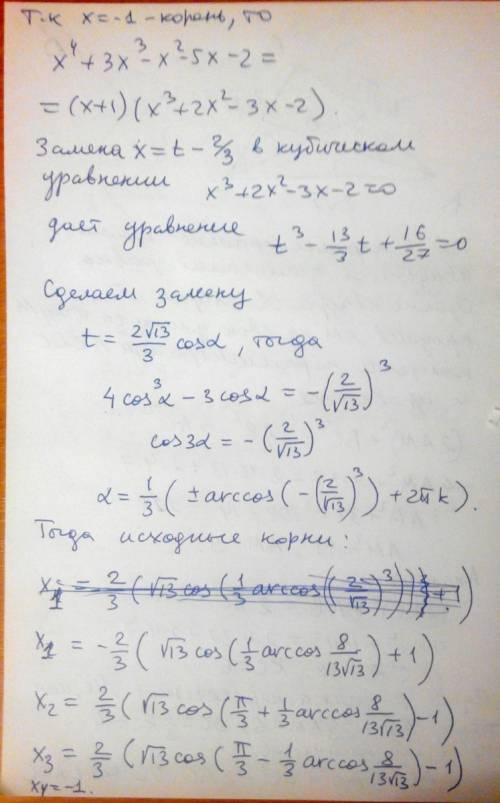 т.к x=-1 - корень, то
x⁴+3x³-x²-5x-2=
=(x+1)(x³+2x²-3x-2).
Замена x=t-2/3 в кубическом
уравнении x³+2x²-3x-2=0
дает уравнение t³-13/3 t+16/27=0
Сделаем замену
t=2√13/3 cosα, тогда
4cos³α-3cosα=-(2/√13)³
cos3α=-(2/√13)³
α=1/3(±arccos(-(2/√13)³)+2πk).
Тогда исходные корни:
x₁=-2/3(√13cos(1/3 arccos 8/13√13)+1)
x₂=2/3(√13cos(π/3+1/3 arccos 8/13√13)-1)
x₃=2/3(√13cos(π/3-1/3 arccos 8/13√13)-1)
x₄=-1.